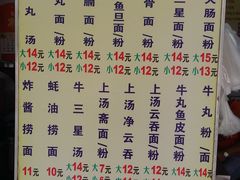 丸汤
丸面/粉
大14元
小12元
腩面/粉
大14元
小12元
鱼旦面/粉
大14元
小12元
骨面/粉
大14元
小12元
二星面/粉
大15元
小12元
大肠面/粉
大15元
小13元
炸酱捞面
11元
蚝油捞面
10元
牛三星汤
大14元
上汤斋面/粉
大7元
上汤净云吞
大14元
上汤云吞面/粉
大14元
牛丸鱼皮面/粉
大14元
牛丸粉/面
大14元